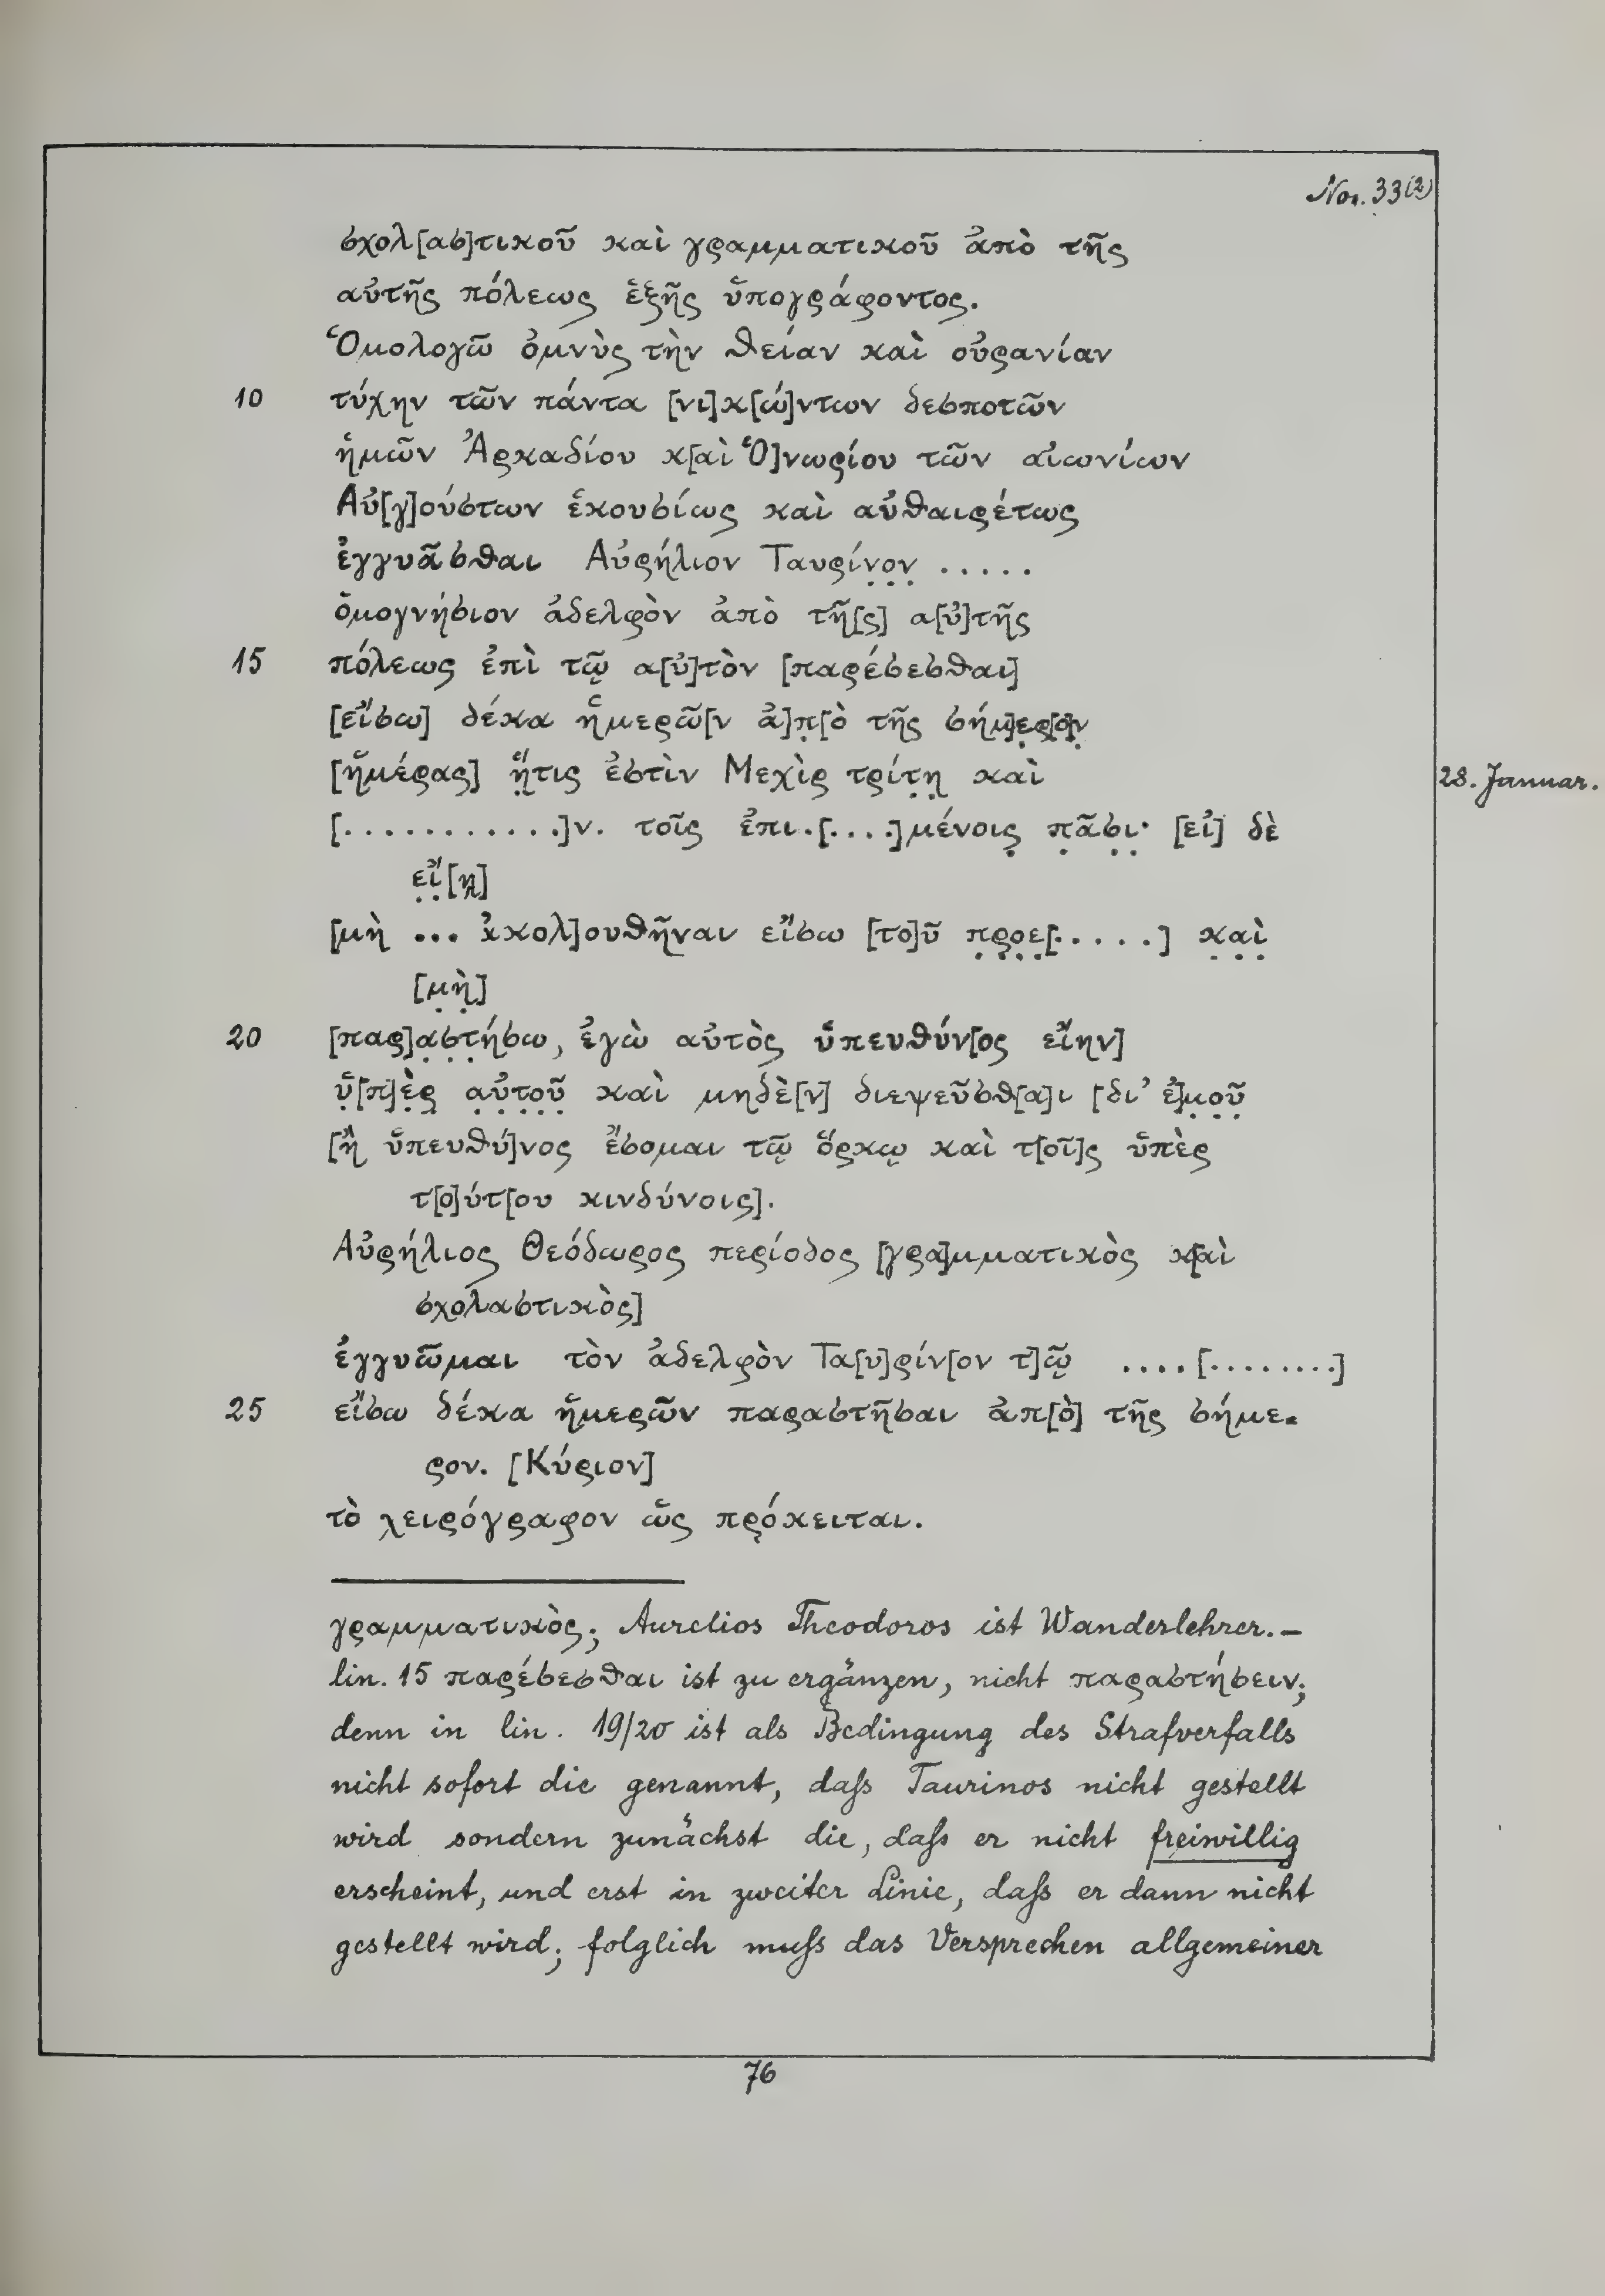 Nor. 33(2)
σχολ[ασ]τικοῦ καὶ γραμματικοῦ ἀπὸ τῆς
αὐτῆς πόλεως ἑξῆς ὑπογράφοντος.
Ὁμολογῶ ὀμνὺς τὴν θείαν καὶ οὐρανίαν
10 τύχην τῶν πάντα [νι]κ[ώ]ντων δεσποτῶν
ἡμῶν Ἀρκαδίου κ[αὶ Ὁ]νωρίου τῶν αἰωνίων
Αὐ[γ]ούστων ἑκουσίως καὶ αὐθαιρέτως
ἐγγυᾶσθαι Αὐρήλιον Ταυρίν̣ο̣ν̣ .....
ὁμογνήσιον ἀδελφὸν ἀπὸ τῆ[ς] α[ὐ]τῆς
15 πόλεως ἐπὶ τῷ α[ὐ]τὸν [παρέσεσθαι]
[εἴσω] δέκα ἡμερῶ[ν ἀ]π̣[ὸ τῆς σήμ]ε̣ρ̣[ο]ν̣
[ἡμέρας] ἥ̣τις ἐστὶν Μεχὶρ τρίτ̣η̣ καὶ
28. Januar.
[...........]ν. τοῖς ἐπι.[....]μένοις̣ π̣ᾶσ̣ι̣· [εἰ] δὲ
ε̣ἴ̣[η]
[μὴ ... ἀκολ]ουθῆναι εἴσω [το]ῦ π̣ρ̣ο̣ε̣[.....] κ̣α̣ὶ̣
[μ̣ὴ̣]
20 [παρ]α̣σ̣τ̣ήσω, ἐγὼ αὐτὸς ὑπευθύν[ος εἴην]
ὑ̣[π]ὲ̣ρ̣ α̣ὐ̣τ̣ο̣ῦ̣ καὶ μηδὲ[ν] διεψεῦσθ[α]ι [δι’ ἐ]μ̣ο̣ῦ̣
[ἢ ὑπευθύ]νος ἔσομαι τῷ ὅρκῳ καὶ τ[οῖ]ς ὑπὲρ
τ[ο]ύτ[ου κινδύνοις].
Αὐρήλιος Θεόδωρος περίοδος [γρα]μματικὸς κ[αὶ
σχολαστικὸς]
ἐγγυῶμαι τὸν ἀδελφὸν Τα[υ]ρίν[ον τ]ῷ ....[........]
25 εἴσω δέκα ἡμερῶν παραστῆσαι ἀπ[ὸ] τῆς σήμε-
ρον. [Κύριον]
τὸ χειρόγραφον ὡς πρ̣όκειται.
γραμματικὸς; Aurelios Theodoros ist Wanderlehrer.–
lin. 15 παρέσεσθαι ist zu ergänzen, nicht παραστήσειν;
denn in lin. 19/20 ist als Bedingung des Strafverfalls
nicht sofort die genannt, daſs Taurinos nicht gestellt
wird sondern zunächst die, daſs er nicht freiwillig
erscheint, und erst in zweiter Linie, daſs er dann nicht
gestellt wird; folglich muſs das Versprechen allgemeiner
76